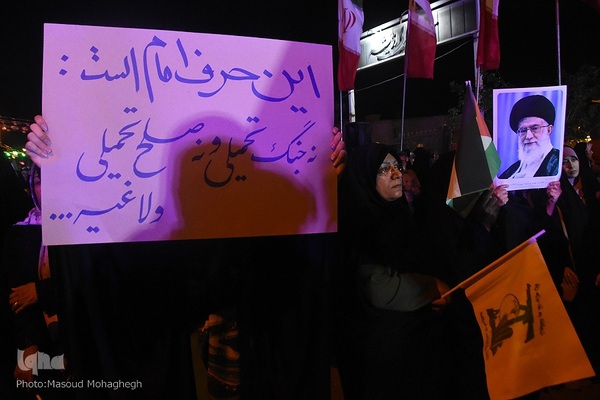 این حرف امام است:
نه جنگ تحمیلی و نه صلح تحمیلی
ولا غیر...
iqna
Photo:Masoud Mohaghegh